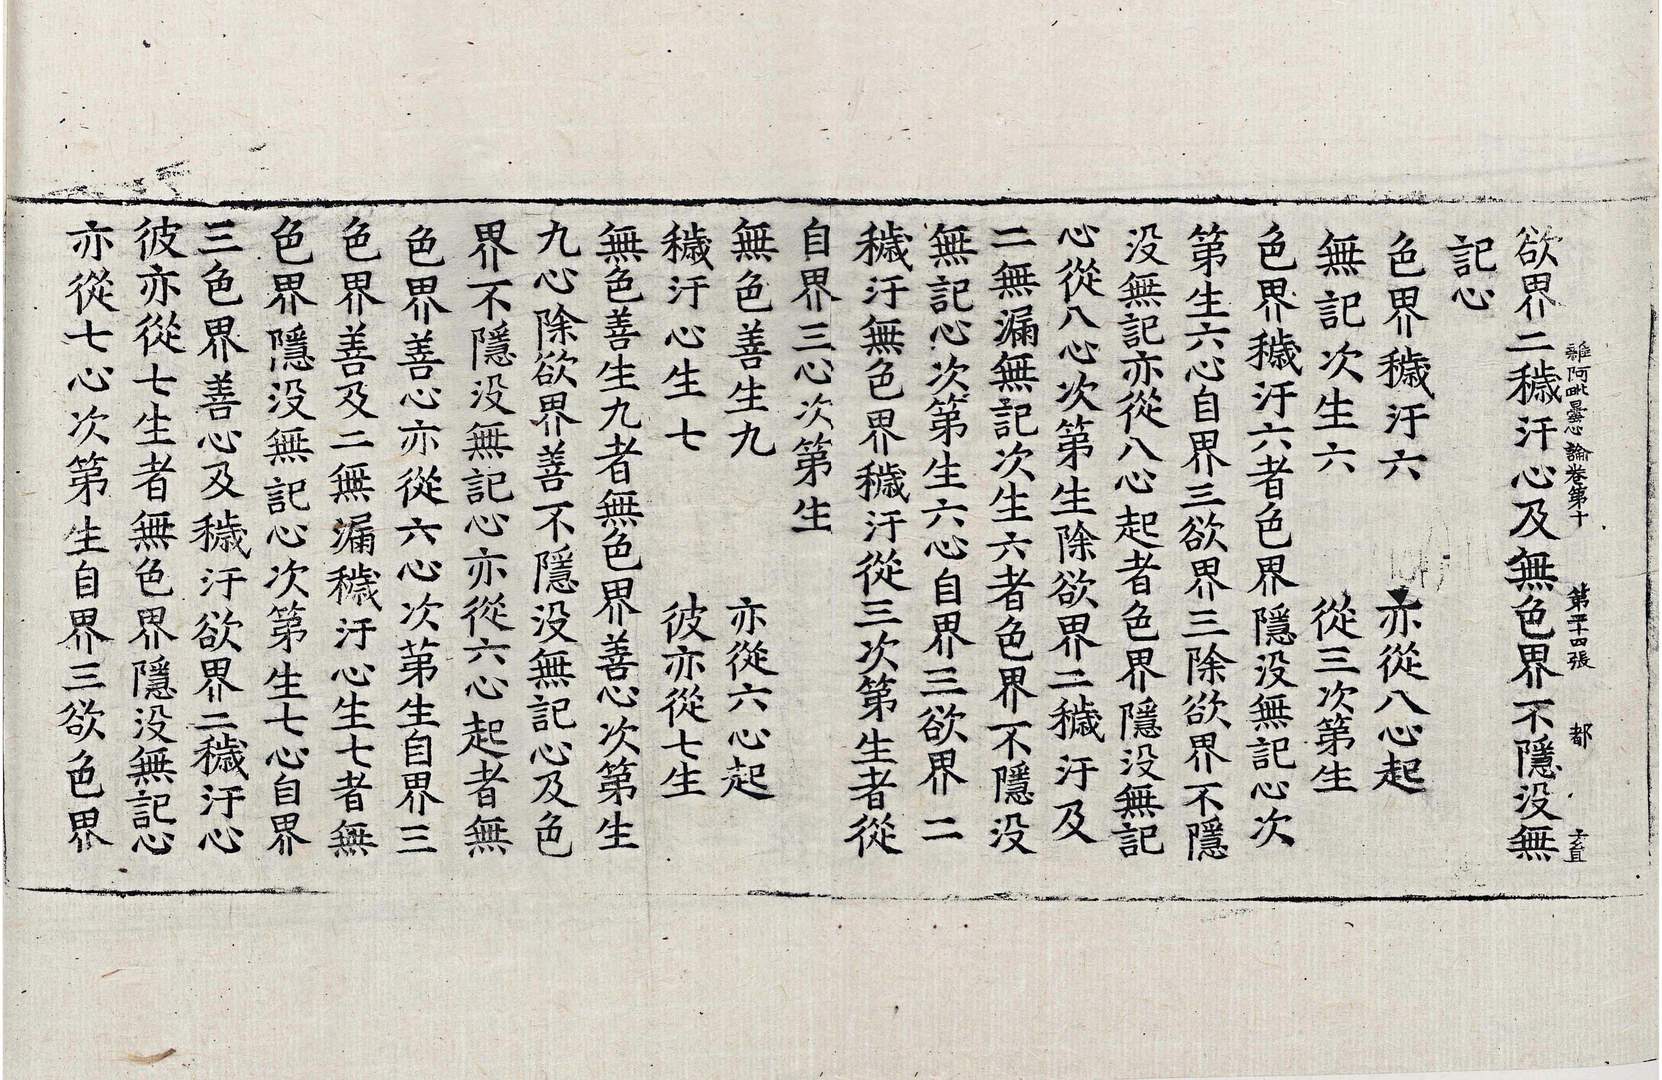 雜阿毗曇心論卷第十　第二十四張　都
欲界二穢汙心及無色界不隱没無
記心
色界穢汙六　亦從八心起
無記次生六　從三次第生
色界穢汙六者色界隱没無記心次
第生六心自界三欲界三除欲界不隱
没無記亦從八心起者色界隱没無記
心從八心次第生除欲界二穢汙及
二無漏無記次生六者色界不隱没
無記心次第生六心自界三欲界二
穢汙無色界穢汙從三次第生者從
自界三心次第生
無色善生九　亦從六心起
穢汙心生七　彼亦從七生
無色善生九者無色界善心次第生
九心除欲界善不隱没無記心及色
界不隱没無記心亦從六心起者無
色界善心亦從六心次第生自界三
色界善及二無漏穢汙心生七者無
色界隱没無記心次第生七心自界
三色界善心及穢汙欲界二穢汙心
彼亦從七生者無色界隱没無記心
亦從七心次第生自界三欲色界